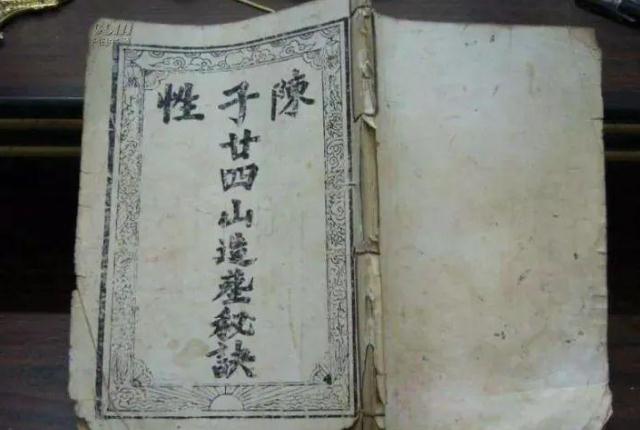 陳子性
廿四山造塟秘訣